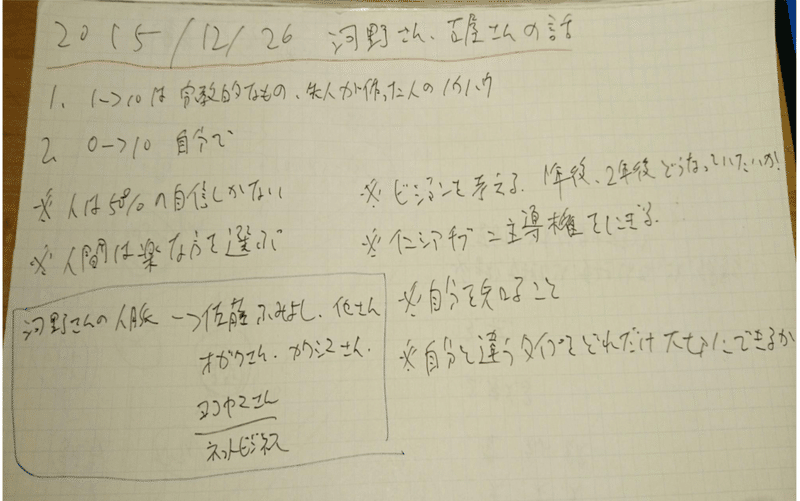 2015/12/26 河野さん、古屋さんの話
1、1->10は宗教的なもの、先人が作った人のノウハウ
2、0->10 自分で
※人は50%の自信しかない
※人間は楽な方を選ぶ
※ビジョンを考える、1年後、2年後どうなっていたいか!
※イニシアチブ=主導権をにぎる。
※自分を知ること
※自分と違うタイプをどれだけ大切にできるか
河野さんの人脈->佐藤ふみよし、他さん
オガワさん、カワシマさん、
ヨコヤマさん
ネットビジネス